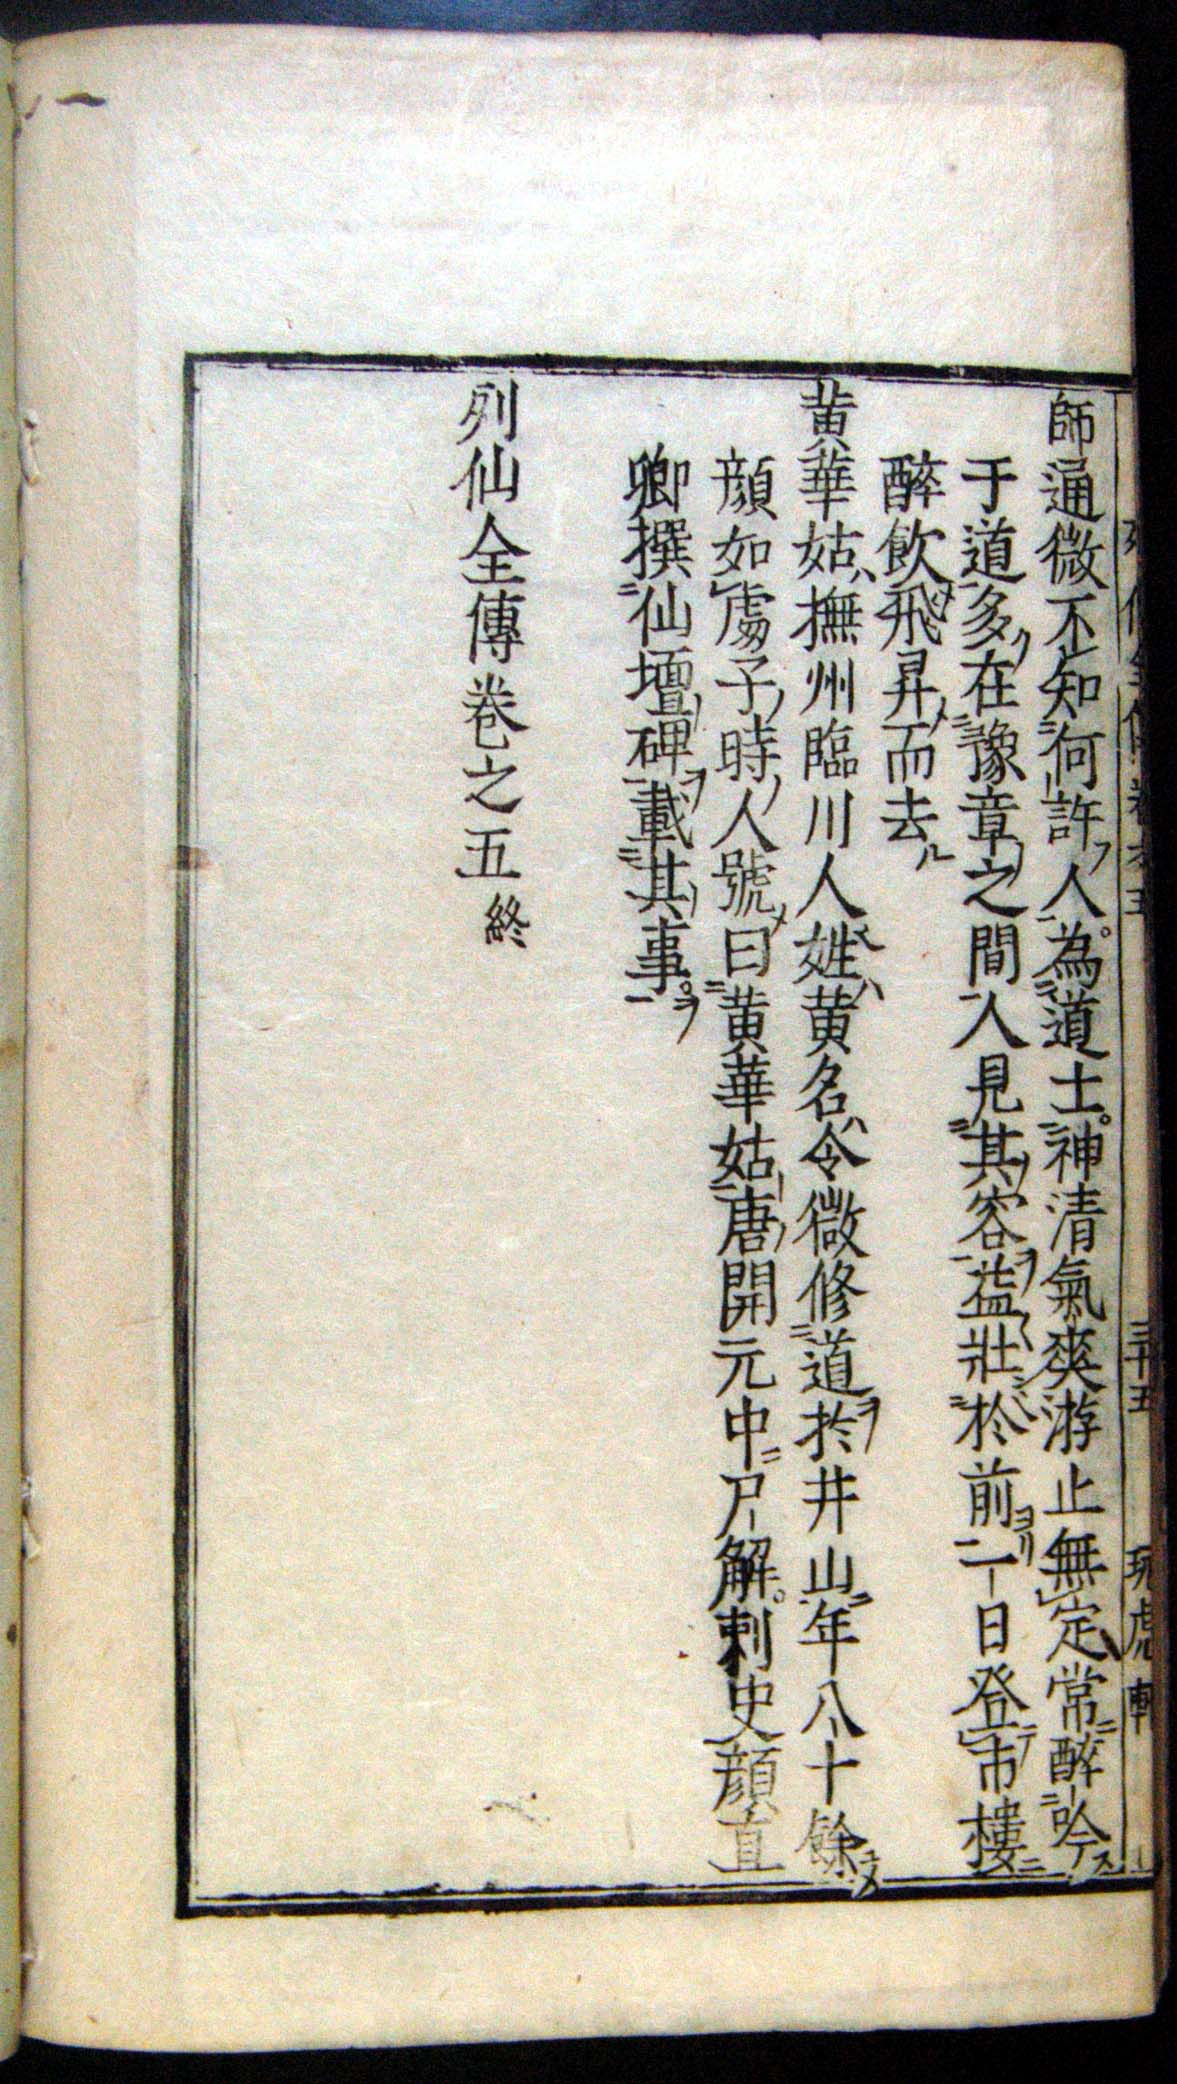 師通微不知何許人為道士神清氣爽游止無定常醉吟
于道多在豫章之間人見其容益壯於前一日登市樓
醉飲飛昇而去
黃華姑撫州臨川人姓黃名令微修道於井山年八十餘
顏如處子時人號曰黃華姑唐開元中尸解刺史顏直
卿撰仙壇碑載其事
列仙全傳卷之五終